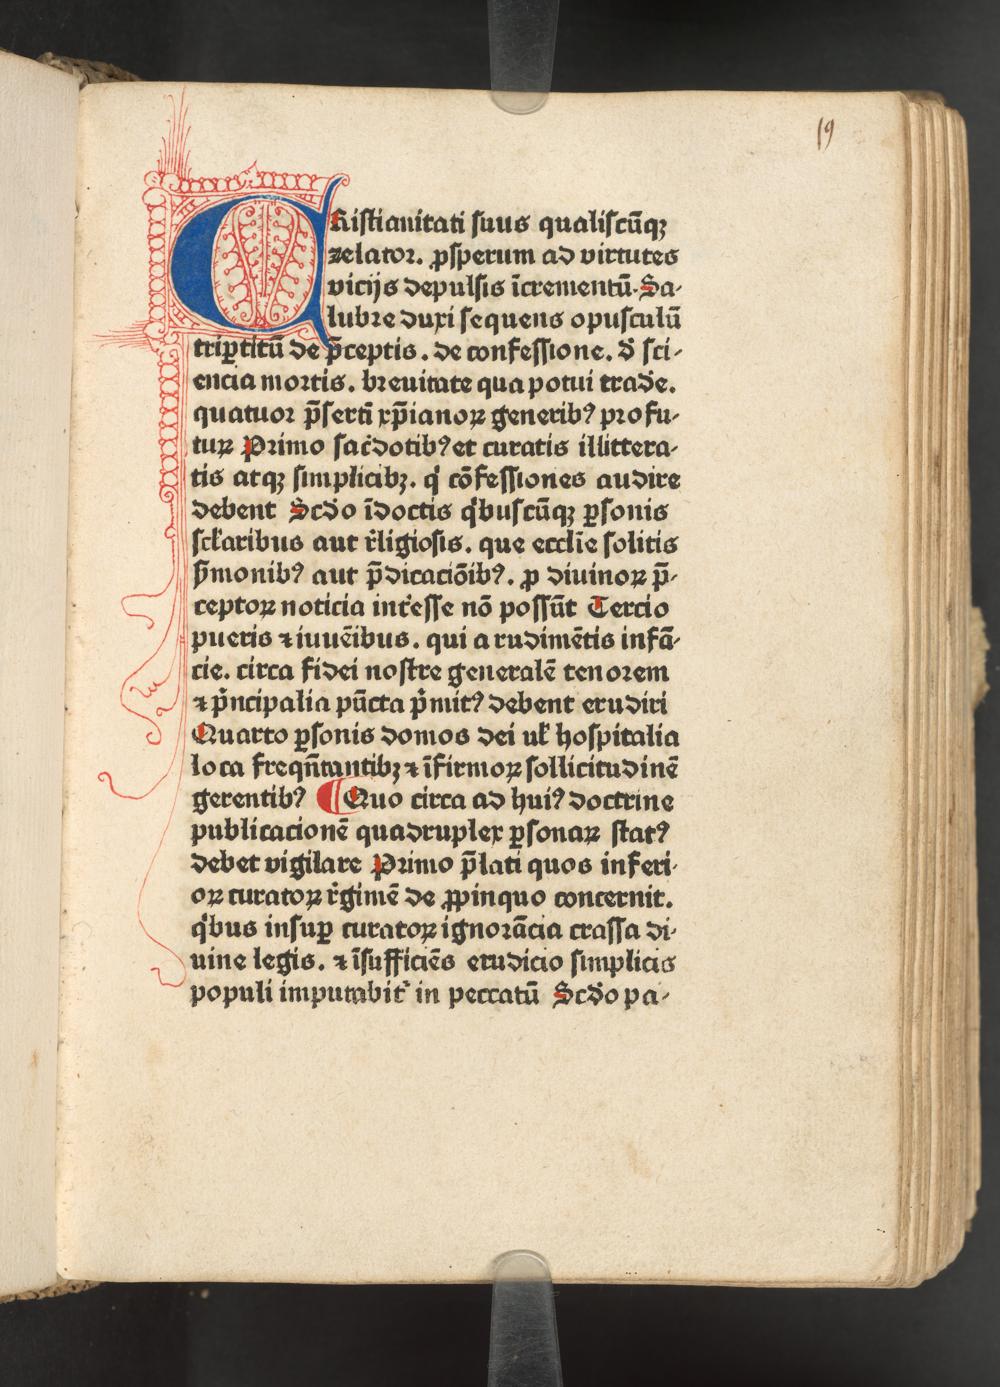 19
CRistianitati suus qualiscūqꝫ
zelator. ꝓsperum ad virtutes
vicijs depulsis īcrementū. Sa-
lubre duxi sequens opusculū
triꝑtitū de p̄ceptis. de confessione. đ sci-
encia mortis. breuitate qua potui trade.
quatuor p̄serti xp̄ianoꝝ generibꝰ profu-
tuꝝ Primo sac̄dotibꝰ et curatis illittera-
tis atqꝫ simplicibꝫ. qͥ cōfessiones audire
debent Scđo īdoctis qͥbuscūqꝫ ꝑsonis
sclaribus aut rͥligiosis. que ecclīe solitis
ẜmonibꝰ aut p̄dicaciōibꝰ. ꝓ diuinoꝝ p̄-
ceptoꝝ noticia intͥesse nō possūt Tercio
pueris ⁊ iuuēibus. qui a rudimētis infā-
cie. circa fidei nostre generalē tenorem
⁊ pͥncipalia pūcta pͥmitꝰ debent erudiri
Quarto ꝑsonis domos dei uł hospitalia
loca freqn̄tantibꝫ ⁊ īfirmoꝝ sollicitudinē
gerentibꝰ ¶ Quo circa ad huiꝰ doctrine
publicacionē quadruplex ꝑsonaꝝ statꝰ
debet vigilare Primo p̄lati quos inferi-
oꝝ curatoꝝ rͥgimē de ꝓpinquo concernit.
qͥbus insuꝑ curatoꝝ ignorācia crassa di-
uine legis. ⁊ īsufficiēs erudicio simplicis
populi imputabitͬ in peccatū Scđo pa-